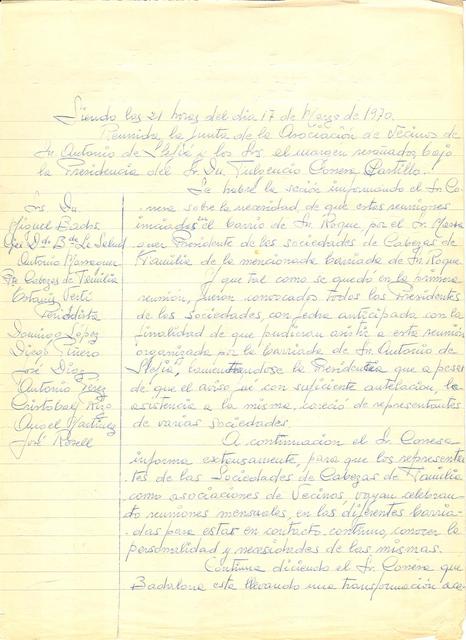 Siendo las 21 horas del dia 17 de Marzo de 1970.
Reunida la Junta de la Asociación de Vecinos de
Sn. Antonio de Llefiá y los Srs. al margen reseñados, bajo
la Presidencia del Sr. Dn. Fulgencio Conesa Castillo.
Se habre la seción informando el Sr. Co-
nesa sobre la necesidad de que estas reuniones
iniciadas en el barrio de Sn. Roque, por el Sr. Marra
quer Presidente de las sociedades de Cabezas de
Familia de la mencionada barriada de Sn. Roque
Y que tal como se quedó en la primera
reunión, fueron convocados todos los Presidentes
de las sociedades, con fecha anticipada con la
finalidad de que pudieran asistir a esta reunión
organizada por la barriada de Sn. Antonio de
Llefiá, lamentandose la Presidencia que a pesar
de que el aviso fué con suficiente antelación, la
asistencia a la misma, careció de representantes
de varias sociedades.
A continuacion el Sr. Conesa
informa extensamente, para que los representan
tes de las Sociedades de Cabezas de Familia
como asociaciones de Vecinos, vayan celebran-
do reuniones mensuales, en las diferentes barria-
das para estar en contacto continuo, conocer la
personalidad y necesidades de las mismas.
Continua diciendo el Sr. Conesa que
Badalona esta llevando una transformación ace-
Srs. Dn.
Miguel Bades
Pte. de La Salud
Antonio Marraquer
Pte Cabezas de Familia
Periodista
Domingo López
Diego
José Diaz
Antonio Perez
Cristobal Rizo
Angel Martinez
José Rosell